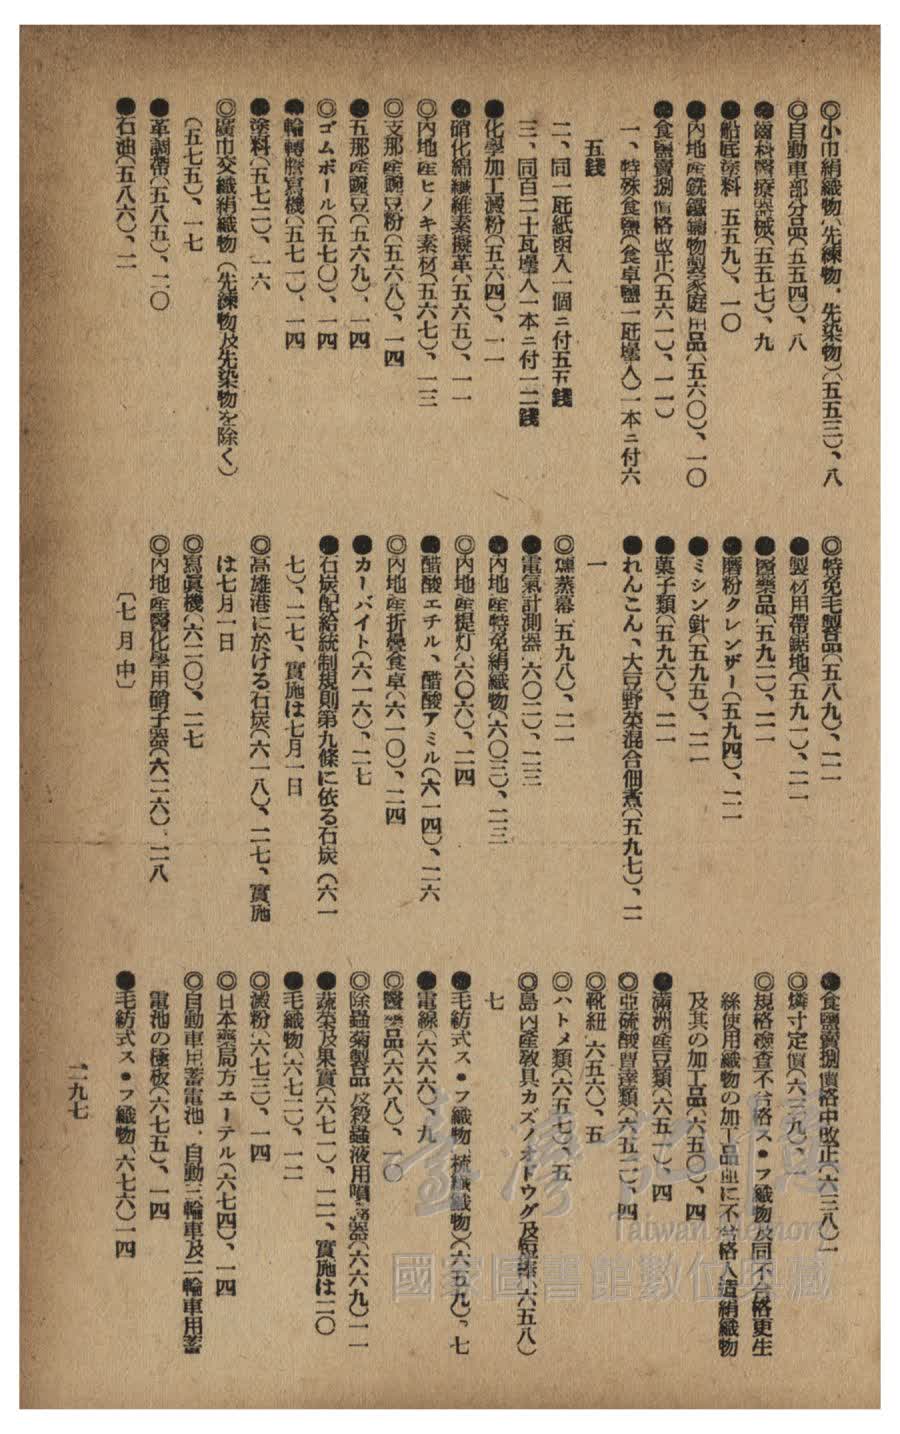 ◎小巾絹織物(先練物、先染物)(五五三)、八
◎自動車部分品(五五四)、八
●齒科醫療器械(五五七)、九
●船底塗料(五五九)、一〇
●內地產銑鐵鑄物製家庭用品(五六〇)、一〇
●食鹽賣捌價格改正(五六一)、一一)
一、特殊食鹽(食卓鹽一瓩壜入)一本ニ付六
五錢
二、同一瓩紙函入一個ニ付五五錢
三、同百二十瓦壜入一本ニ付一二錢
●化學加工澱粉(五六四)、一一
●硝化綿纖維素擬革(五六五)、一一
◎內地產ヒノキ素材(五六七)、一三
◎支那產豌豆粉(五六八)、一四
●五那產豌豆(五六九)、一四
◎ゴムボール(五七〇)、一四
●輪轉謄寫機(五七一)、一四
●塗料(五七二)、一六
◎廣巾交織絹織物(先練物及先染物を除く)
(五七五)、一七
●革調帶(五八五)、二〇
●石油(五八六)、二一
◎特免毛製品(五八九)、二一
●製材用帶鋸地(五九一)、二一
●醫藥品(五九二)、二一
●磨粉クレンザー(五九四)、二一
●ミシン針(五九五)、二一
●菓子類(五九六)、二一
●れんこん、大豆野菜混合佃煮(五九七)、二
一
◎燻蒸幕(五九八)、二一
●電氣計測器(六〇二)、二三
●內地產特免絹織物(六〇三)、二三
◎內地產提灯(六〇六)、二四
●醋酸エチル、醋酸アミル(六一四)、二六
◎內地產折疊食卓(六一〇)、二四
●カーバイト(六一六)、二七
●石炭配給統制規則第九條に依る石炭(六一
七)、二七、實施は七月一日
◎高雄港に於ける石炭(六一八)、二七、實施
は七月一日
◎寫眞機(六二〇)、二七
◎內地產醫化學用硝子器(六二六)、二八
〔七月中〕
●食鹽賣捌價格中改正(六三八)一
◎燐寸定價(六三九)、一
◎規格檢查不合格ス・フ織物及同不合格更生
絲使用織物の加工品並に不合格人造絹織物
及其の加工品(六五〇)、四
●滿洲產豆類(六五一)、四
◎亞硫酸曹達類(六五二)、四
◎靴紐(六五六)、五
◎ハトメ類(六五七)、五
◎島內產敎具カズノオドウグ及短棒(六五八)
七
●毛紡式ス・フ織物(梳纖織物)(六五九)、七
●電線(六六六)、九
◎醫藥品(六六八)、一〇
◎除蟲菊製品及殺蟲液用噴霧器(六六九)一一
●蔬菜及果實(六七一)、一二、實施は二〇
●毛織物(六七二)、一二
◎澱粉(六七三)、一四
◎日本藥局方エーテル(六七四)、一四
◎自動車用蓄電池、自動三輪車及二輪車用蓄
電池の極板(六七五)、一四
●毛紡式ス・フ織物(六七六)一四
二九七
臺灣記憶
Taiwan Memory
國家圖書館數位典藏